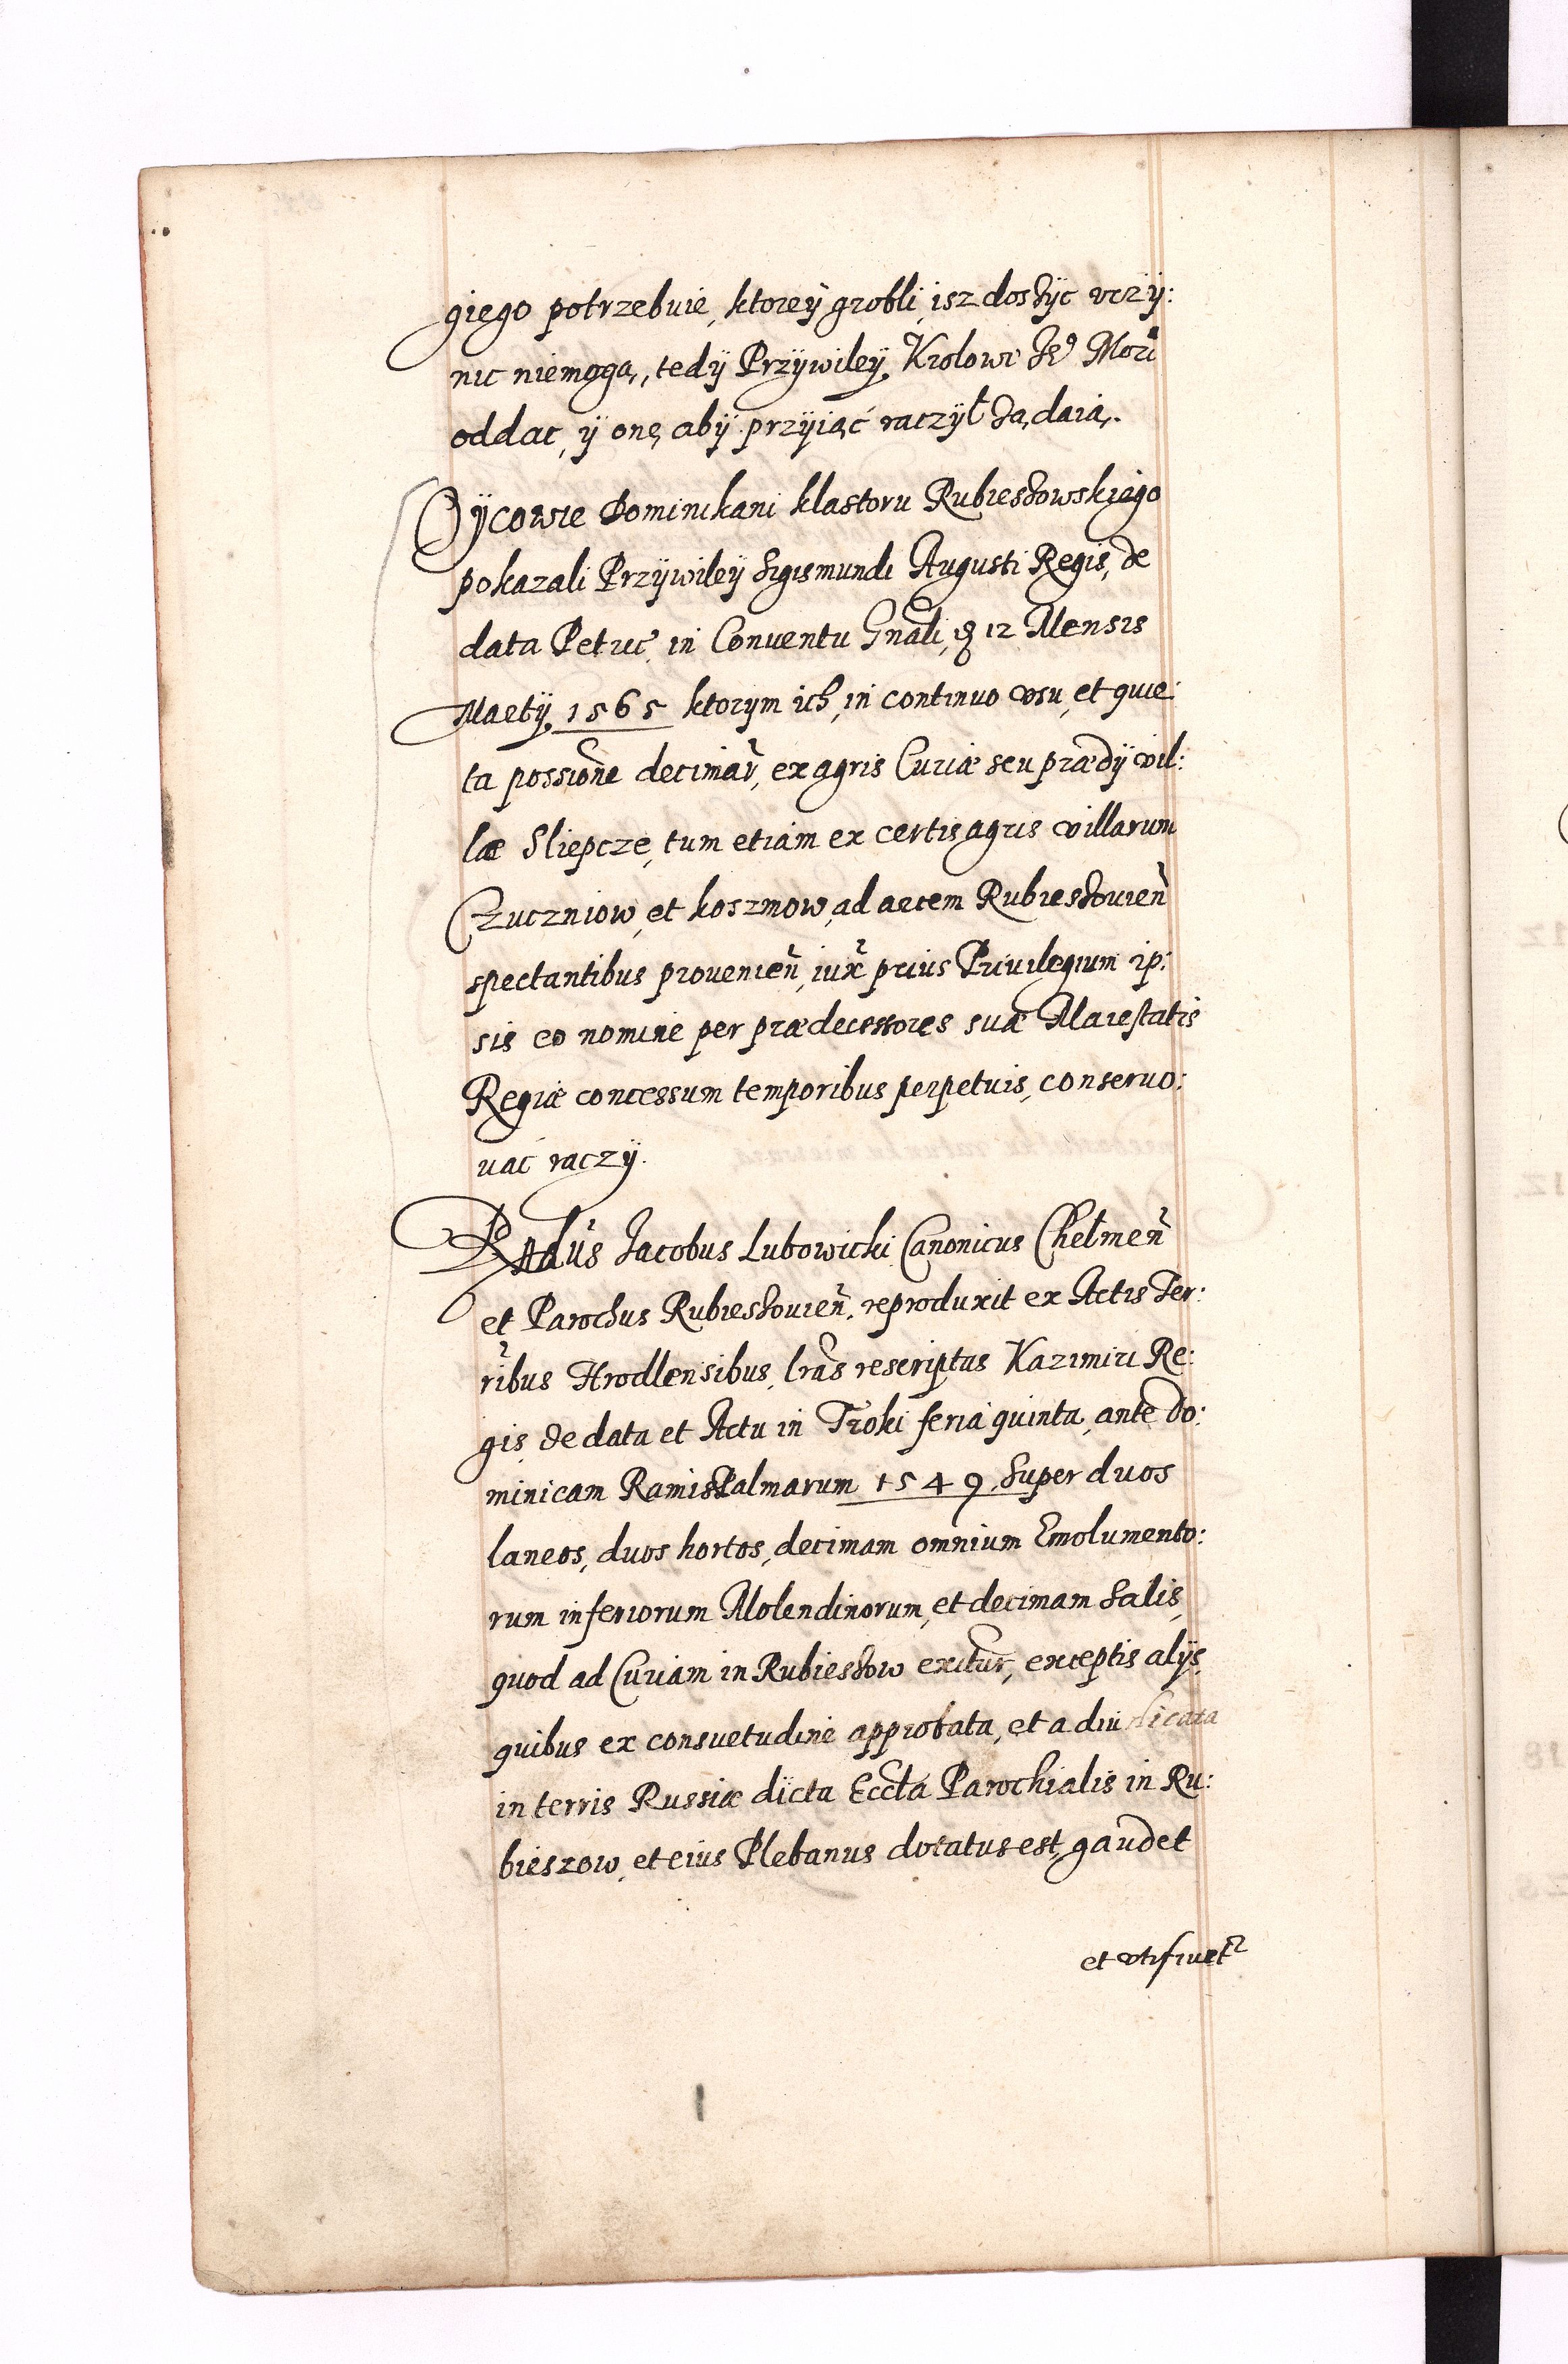 giego potrzebuie, ktorey grobli, isz dosyc vczy:
nic niemogą, tedy Przywiley Krolowi Je⁹ Mozi
oddac, y onę aby przyiąć raczył żądaią.
Oycowie Dominikani klastoru Rubieszowskiego
pokazali Przywiley Sigismundi Augusti Regis, de
data Petric̃ in Conventu Gñali, 12 Mensis
Martij 1565 ktorym ich, in continuo vsu, et quie:
ta possione decimar̃, ex agris Curiæ seu prædij vil:
læ Sliepcze, tum etiam ex certis agris villarum
Czuczniow, et koszmow, ad arcem Rubieszouieñ
spectantibus prouenieñ, iux̃ prius Priuilegium ip:
sis eo nomine per prædecessores suæ Maiestatis
Regiæ concessum temporibus perpetuis, conseruo:
uać raczy.
Rñdus Jacobus Lubowicki Canonicus Chełmeñ
et Parochus Rubieszouieñ. reproduxit ex Actis Ter:
ribus Hrodlensibus, lras rescriptas Kazimiri Re:
gis, de data et Actu in Troki feria quinta, ante Do:
minicam RamisPalmarum 1549. Super duos
laneos, duos hortos, decimam omnium Emolumento:
rum inferiorum Molendinorum, et decimam Salis,
quod ad Curiam in Rubieszow exitur, exceptis alijs,
quibus ex consuetudine approbata, et adiudicata
in terris Russiæ dicta Eccla Parochialis in Ru:
bieszow, et eius Plebanus dotatus est, gaudet
et vtifruet̃